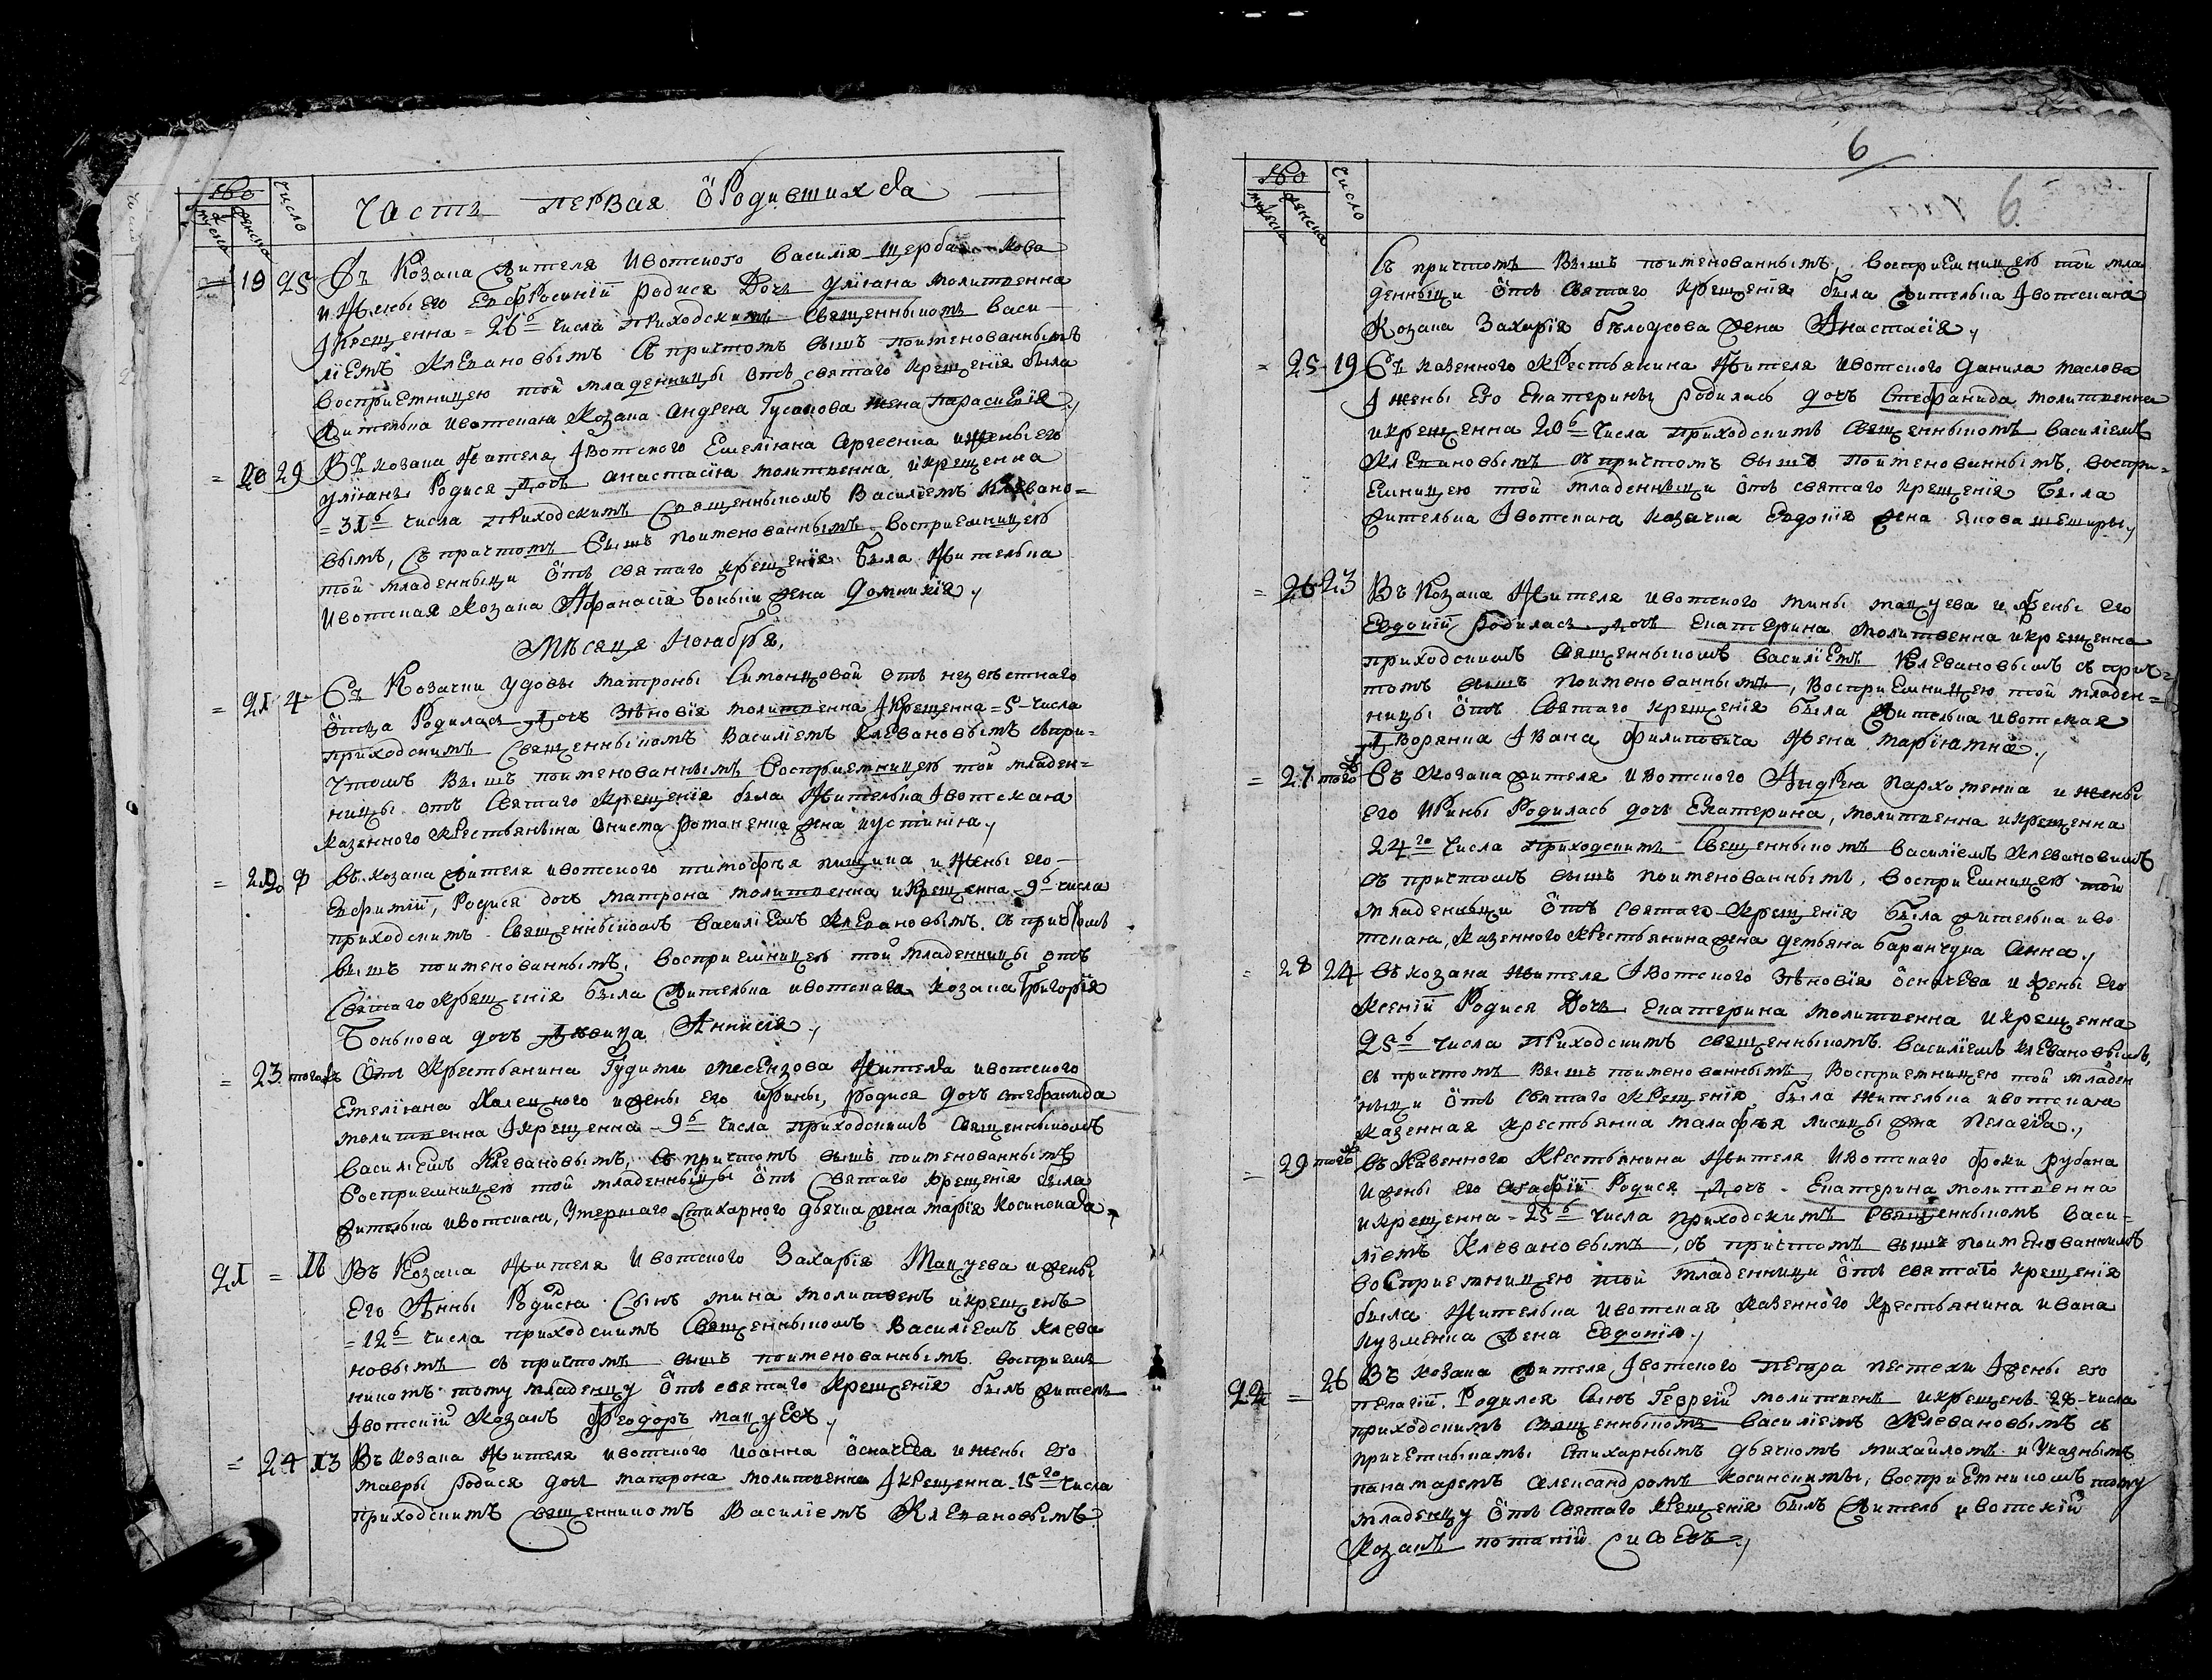 Часть первая ѿ Родившихся
мужеска
женска
число
19 25 Въ Козака жителя Ивотского Василия Щербакова
и жены его Евфросинiи родися Дочь Улiяна молитвенна
и крещенна = 26ь числа приходскимъ священникомъ Васи-
лiемъ Клевановымъ съ причтомъ вышъ поименованнымъ
воспрiемницею той младенницы отъ святаго крещенiя была
жителька ивотская козака Андрея Гусакова жена Параскевiя
= 20 29 Въ козака жителя Ивотского Емелiяна Сергеенка и жены его
Улiяны Родися дочь Анастасiя молитвенна и крещенна
= 31ь числа приходскимъ священникомъ Василiемъ Клевано=
вымъ, съ причтомъ вышъ поименованнымъ воспрiемницею
той младенницы отъ святаго крещенiя была жителька
Ивотская козака Афанасiя Боньки жена Домникiя
Мѣсяца Ноября,
= 21 4 Въ Козачки удовы Матроны Симонцовой отъ неизвѣстнаго
отца Родилась дочь Зѣновiя молитвенна и крещенна = 5 числа
приходскимъ священникомъ Василiемъ Клевановымъ съ при=
чтомъ вышъ поименованнымъ воспрiемницею той младен=
ницы отъ святаго крещенiя была жителька Ивотская
казенного крестьянина Ониска Романенка жена Иустинiя
= 22 8 Въ козака жителя ивотского Тимофѣя Пищика и жены его
Евфимiи, Родися дочь Матрона молитвенна и крещенна 9ь числа
приходскимъ священникомъ Василiемъ Клевановымъ, съ причтомъ
вышъ поименованнымъ, воспрiемницею той младенницы отъ
святаго крещенiя была жителька ивотская козака Григорiя
Бонькова дочь девица Аннисiя
= 23 тогожъ Отъ Крестьянина жителя ивотского
Емелiяна и жены его Ирины, родися дочь Стефанида
молитвенна и крещенна 9ь числа приходскимъ священникомъ
Василiемъ Клевановымъ, съ причтомъ вышъ поименованнымъ
воспрiемницею той младенницы отъ святаго крещенiя была
жителька ивотская, умершаго стихарного дьячка жена Марiя Косинская
21 = 11 Въ Козака жителя Ивотского Захарiя Мацуева и жены
его Анны Родися сынъ Мина молитвенъ и крещенъ
= 12ь числа приходскимъ священникомъ Василiемъ Клева
новымъ съ причтомъ вышъ поименованнымъ воспрiем
никомъ тому младенцу отъ святаго крещенiя былъ житель
Ивотскiй козакъ Феодоръ Мацуевъ
= 24 13 Въ Козака жителя ивотского Иоанна Осначева и жены его
Мавры родися дочь Матрона молитвенна и крещенна 15го числа
приходскимъ священникомъ Василiемъ Клевановымъ
6
6.
мужеска
женска
число
съ причтомъ вышъ поименованнымъ, воспрiемницею той мла
денницы отъ святаго крещенiя была жителька Ивотская
Козака Захарiя Бѣлоусова жена Анастасiя
= 25 19 Въ казенного крестьянина жителя ивотского Данила Маслова
и жены его Екатерины родилась дочь Стефанида молитвенна
и крещенна 20ь числа приходскимъ священникомъ Василiемъ
Клевановымъ съ причтомъ вышъ поименованнымъ, воспри=
емницею той младенницы отъ святаго крещенiя была
жителька Ивотская козачка Евдокiя жена Якова
= 26 23 Въ Козака жителя ивотского Мины Мацуева и жены его
Евдокiи родилась дочь Екатерина молитвенна и крещенна
приходскимъ священникомъ Василiемъ Клевановымъ съ прич=
томъ вышъ поименованнымъ, воспрiемницею той младен=
ницы отъ святаго крещенiя была жителька ивотская
дворянка Ивана Филиповича жена Марiямна
= 27 тогожъ Въ Козака жителя ивотского Андрея Пархоменка и жены
его Ирины Родилась дочь Екатерина, молитвенна и крещенна
24го числа приходскимъ священникомъ Василiемъ Клевановимъ
съ причтомъ вышъ поименованнымъ, воспрiемницею той
младенницы отъ святаго крещенiя была жителька иво
тская, казенного крестьянина жена Демьяна Баранчука Анна
= 28 24 Въ козака жителя Ивотского Зѣновiя Осначева и жены его
Ксенiи Родися дочь Екатерина молитвенна и крещенна
25ь числа приходскимъ священникомъ Василiемъ Клевановымъ,
съ причтомъ вышъ поименованнымъ, воспрiемницею той младен
ницы отъ святаго крещенiя была жителька ивотская
казенная крестьянка Малафѣя Лисицы жена Пелагiя
= 29 тогожъ Въ казенного крестьянина жителя Ивотского Фоки Рубана
и жены его Агафiи Родися дочь Екатерина молитвенна
и крещенна = 25ь числа приходскимъ священникомъ Васи=
лiемъ Клевановымъ, съ причтомъ вышъ поименованнимъ
воспрiемницею той младенницы отъ святаго крещенiя
была жителька Ивотская казенного крестьянина Ивана
Кузменка жена Евдокiя
22 = 26 Въ козака жителя Ивотского Петра Пестехи и жены его
Пелагiи, Родился сынъ Георгiй молитвенъ и крещенъ 28 числа
приходскимъ священникомъ Василiемъ Клевановымъ съ
причетныками стихарнымъ дьячкомъ Михайломъ и указнымъ
панамаремъ Александромъ Косинскимы, воспрiемникомъ тому
младенцу отъ святаго крещенiя былъ житель ивотскiй
козакъ Потапiй